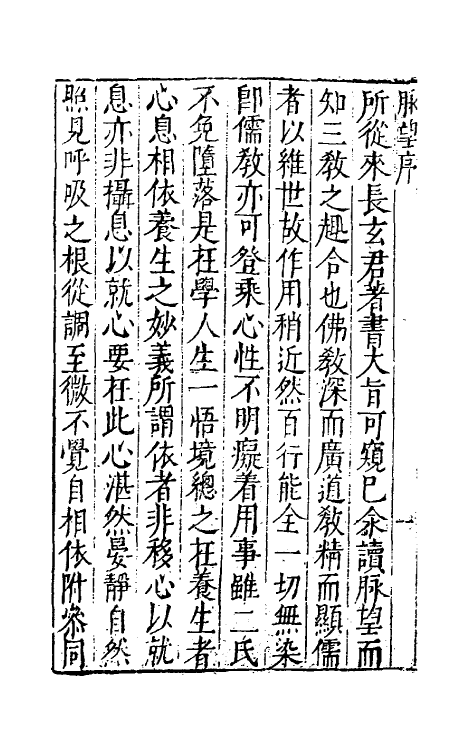 脉望序
所從來長玄君著書大旨可窺已余讀脉望而
知三敎之趣合也佛敎深而廣道敎精而顯儒
者以維世故作用稍近然百行能全一切無染
卽儒敎亦可登乘心性不明癡着用事雖二氏
不免墮落是在學人生一悟境總之在養生者
心息相依養生之妙義所謂依者非移心以就
息亦非攝息以就心要在此心湛然晏靜自然
照見呼吸之根從調至微不覺自相依附叅同
一